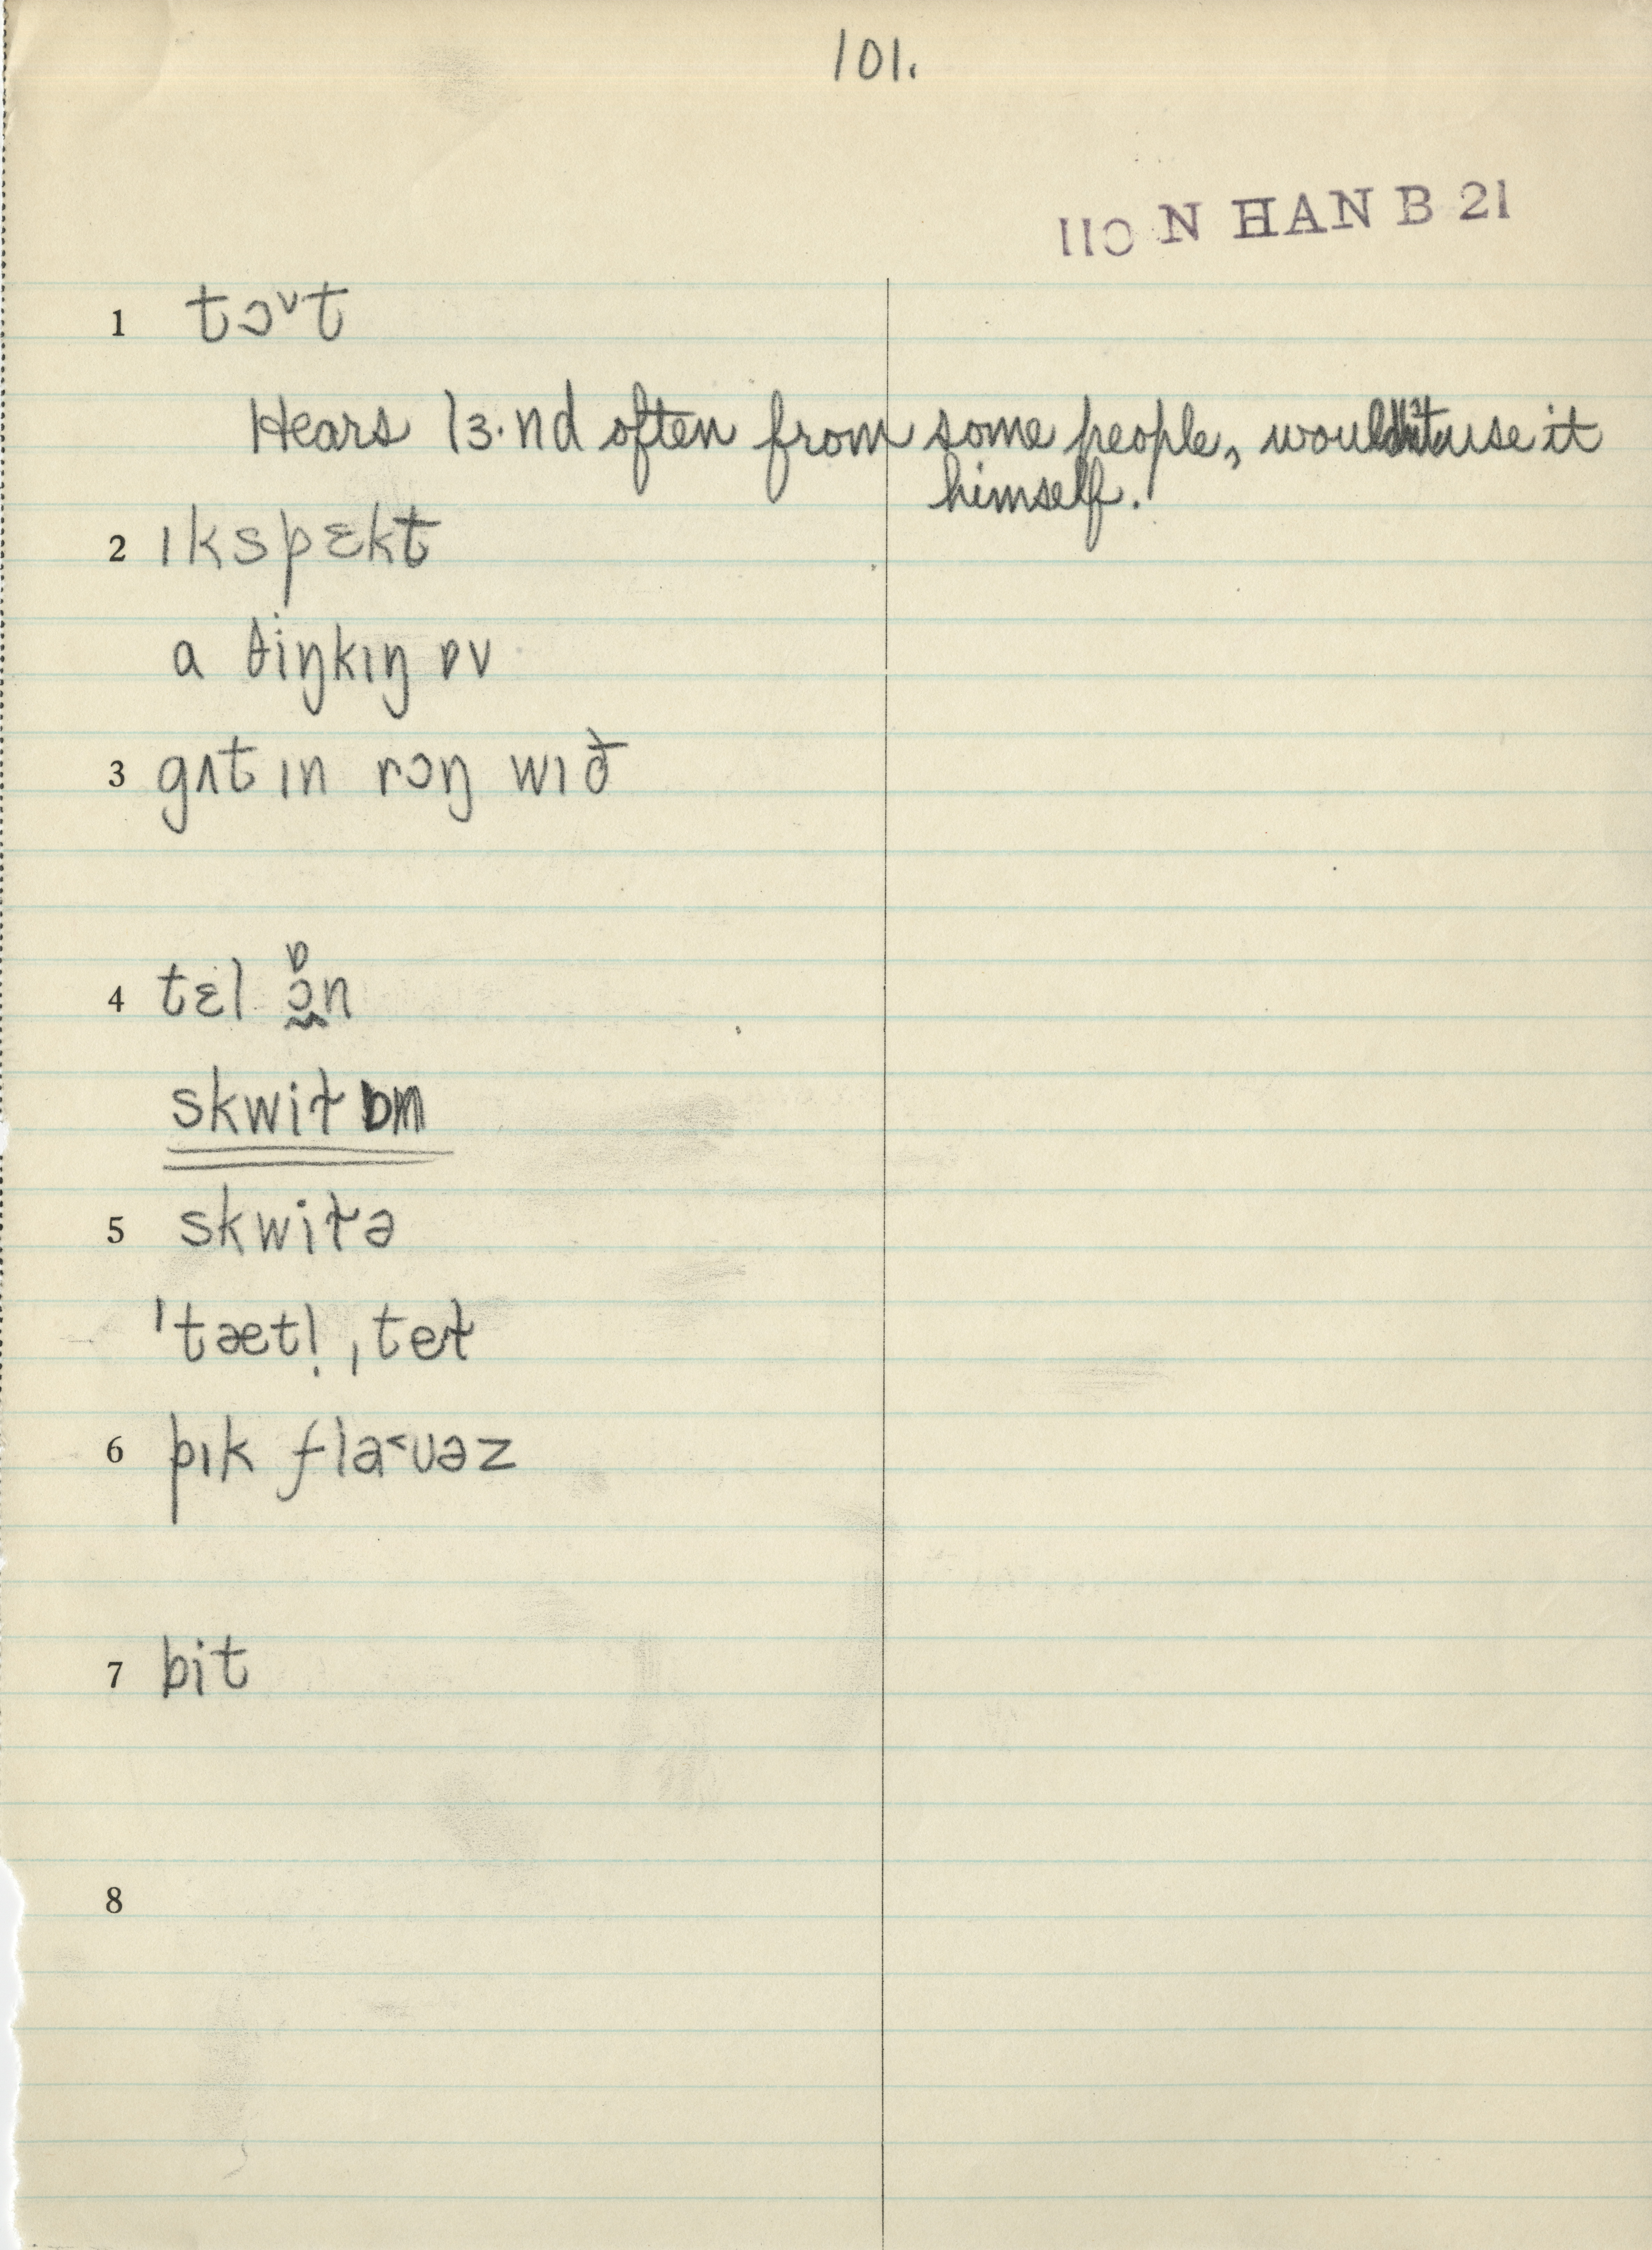 101.
110 N HAN B 21
1 tɔ˅t
Hears lɜ·nd often from some people, wouldn't use it
himself.
2 ɪkspɛkt
a θiŋkɪŋ ɒv
3 gʌt ɪn rɔŋ wɪð
4 tɛl ɔ̰ɒn
skwit̬ ɒn
5 skwit̬ə
ˈtætl̩ ˌtet̬
6 pɪk fla˂ʊəz
7 bit
8